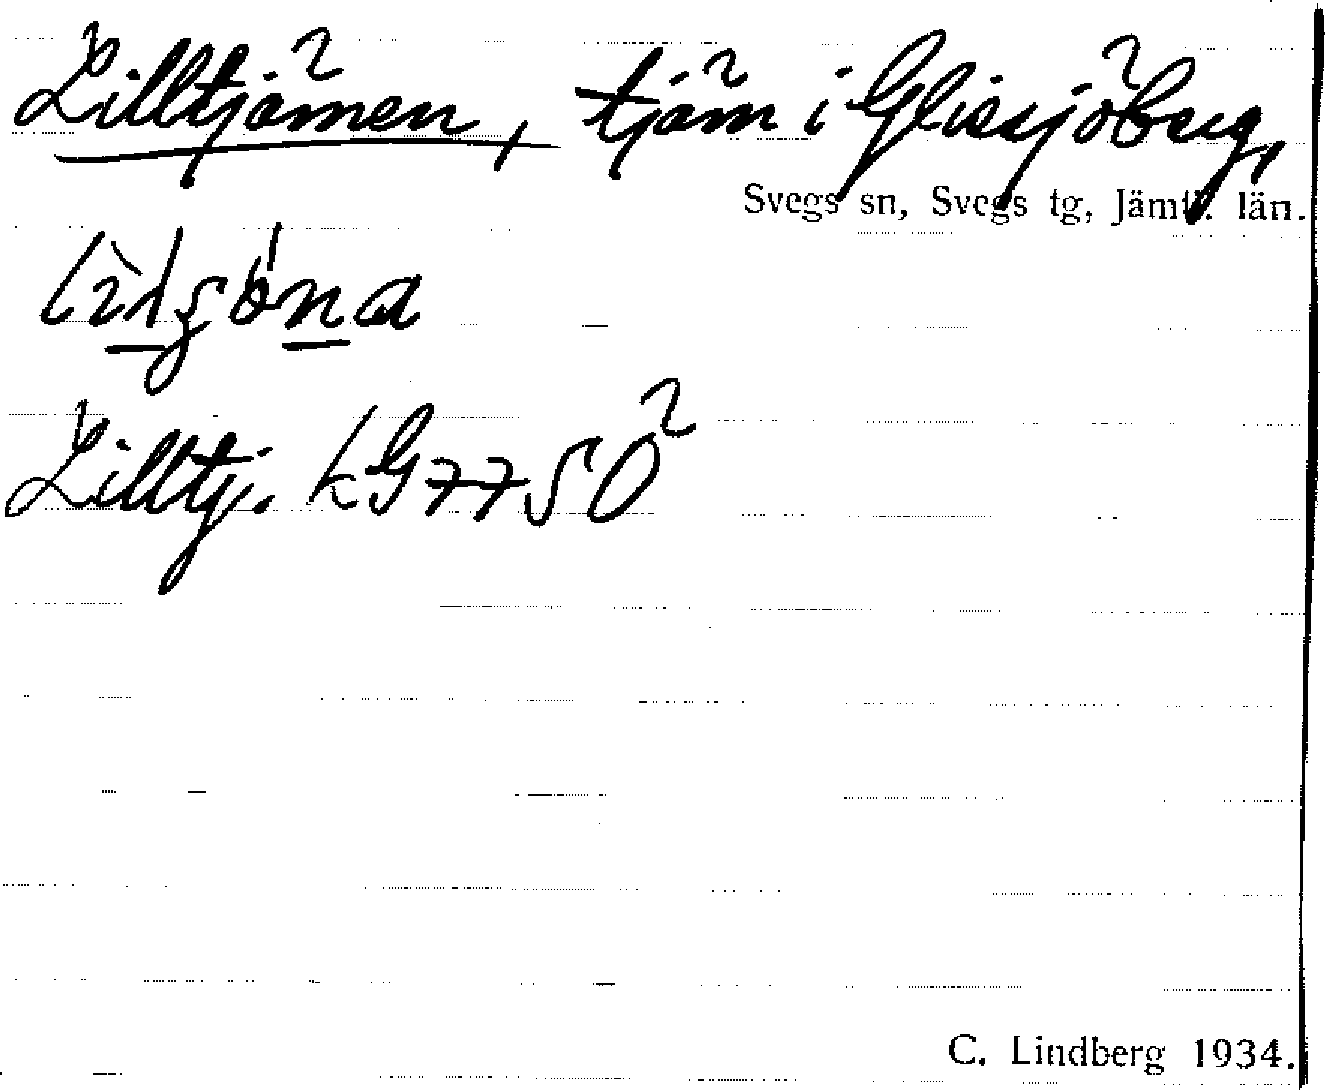 Lilltjärnen, tjärn i Glissjöberg,
Svegs sn, Svegs tg, Jämtl. län.
Lilltj.
C. Lindberg 1934.